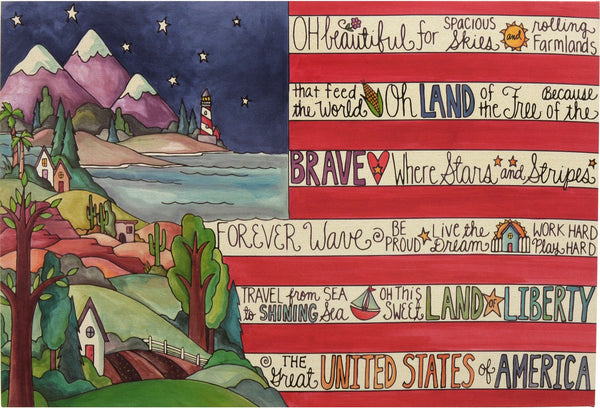 OH beautiful for SPACIOUS Skies and rolling Farmlands
that feed the World Oh LAND of the Free Because of the
BRAVE Where Stars and Stripes
FOREVER Wave BE PROUD Live the Dream WORK HARD Play HARD
TRAVEL from SEA to SHINING Sea OH This SWEET LAND of LIBERTY
THE Great UNITED STATES of AMERICA